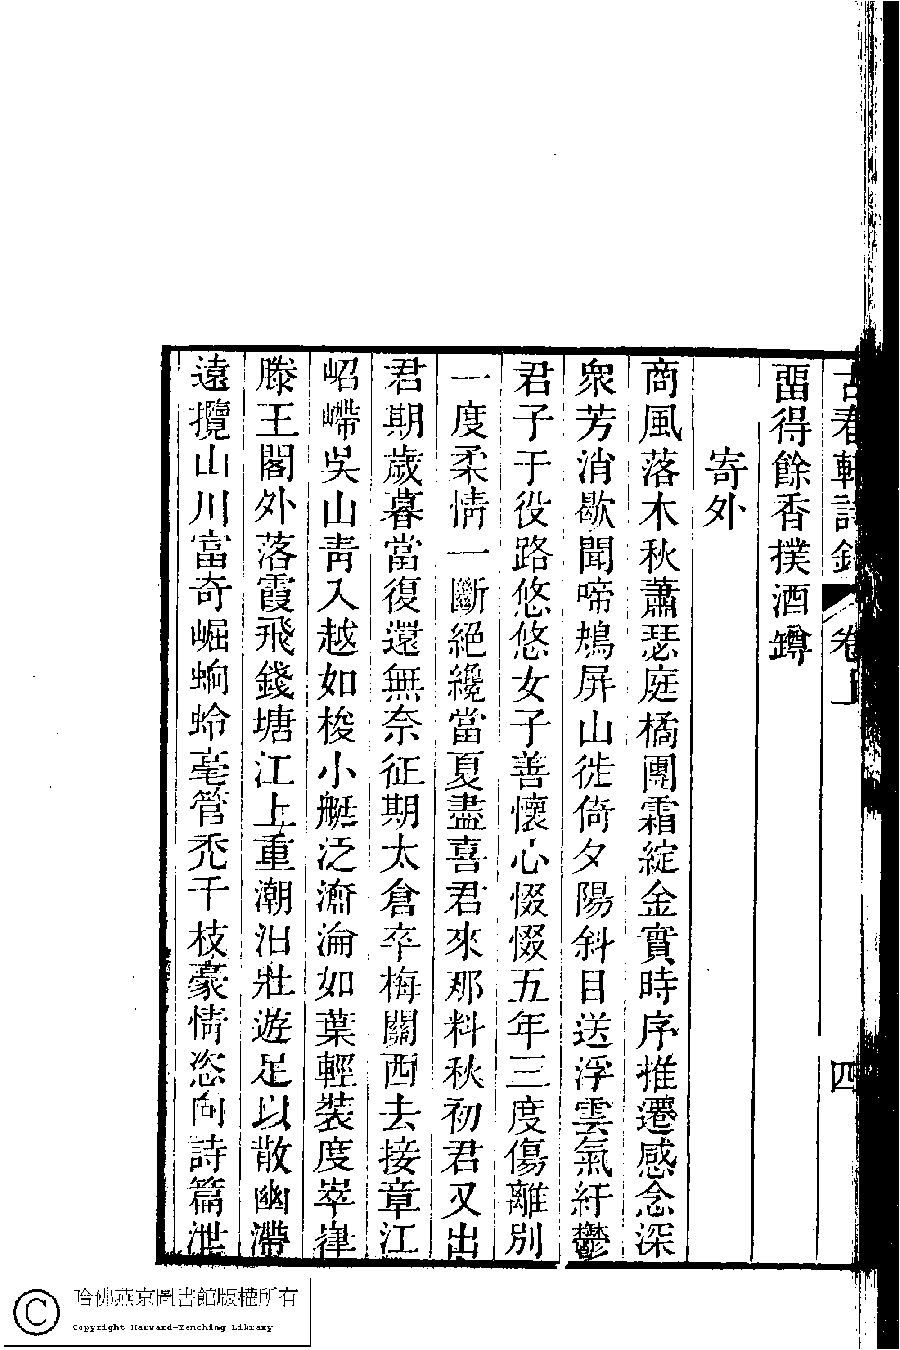 古春軒詩鈔 卷上 四
畱得餘香撲酒罇
寄外
商風落木秋蕭瑟庭橘團霜綻金實時序推遷感念深
衆芳消歇聞啼鴂屏山徙倚夕陽斜目送浮雲氣紆鬱
君子于役路悠悠女子善懷心惙惙五年三度傷離別
一度柔情一斷絕纔當夏盡喜君來那料秋初君又出
君期歲暮當復還無奈征期太倉卒梅關西去接章江
岹嵽吳山靑入越如梭小艇泛濟淪如葉輕裝度崒嵂
滕王閣外落霞飛錢塘江上重潮汩壯遊足以散幽滯
遠攬山川富奇崛蜔蛉毫管禿千枝豪情恣向詩篇泄
哈佛燕京圖書館版權所有
Copyright Harvard-Yenching Library